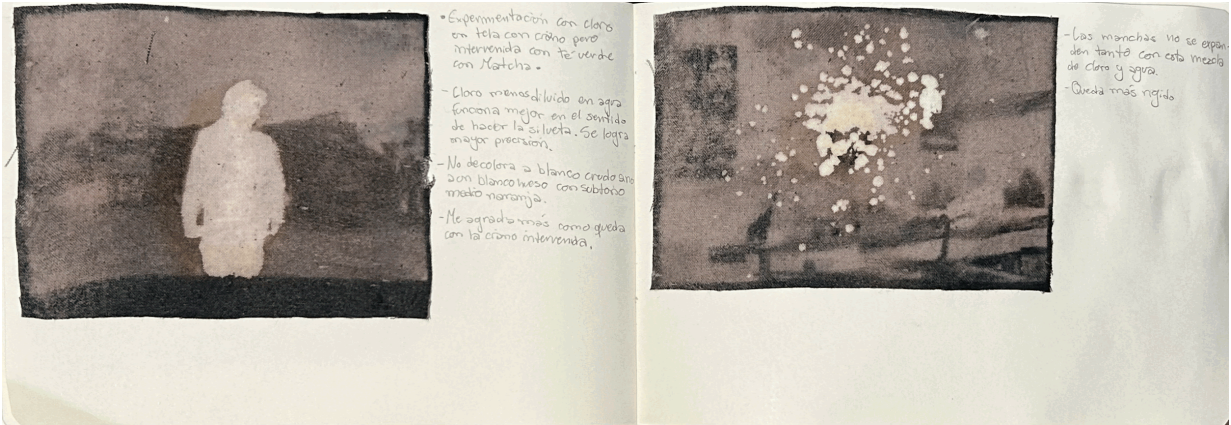 • Experimentación con cloro
en tela con ciano pero
intervenida con té verde
con Matcha.
- Cloro menos diluido en agua
funciona mejor en el sentido
de hacer la silueta. Se logra
mayor precisión.
- No decolora a blanco crudo sino
a un blanco hueso con subtono
medio naranja.
- Me agrada más como queda
con la ciano intervenida.
- Las manchas no se expan-
den tanto con esta mezcla
de cloro y agua.
- Queda más rígido